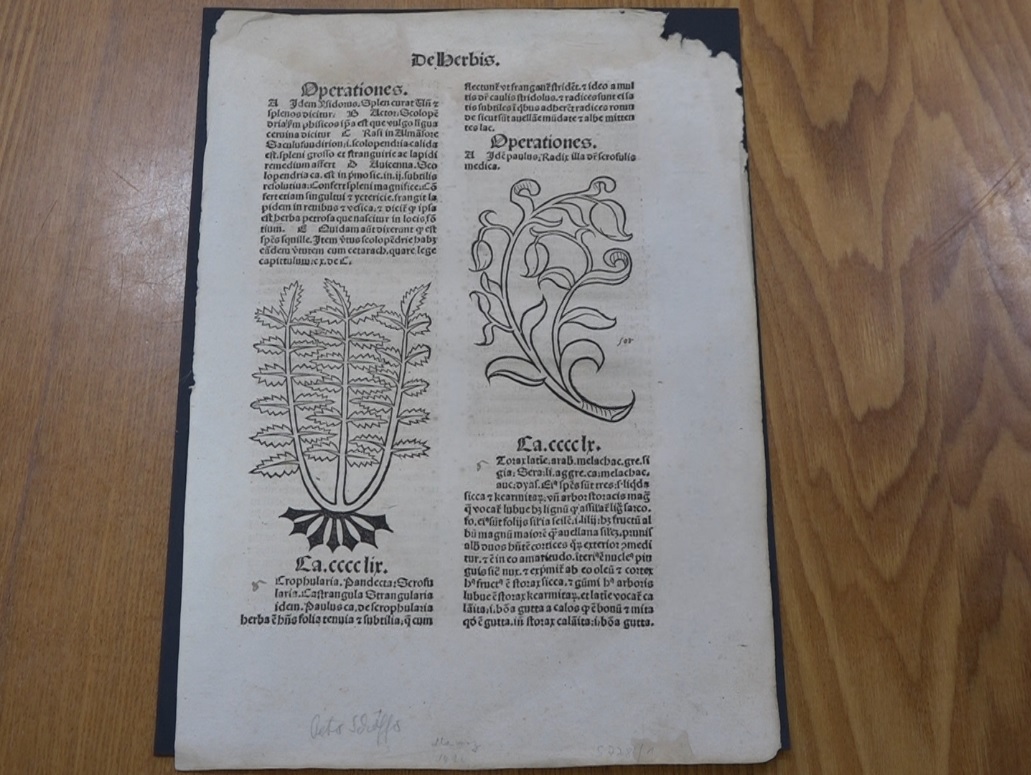 De Herbis.
Operationes.
A Idem Ysidorus. Splen curat Uñ ⁊
splenos dicitur. B Actor. Scolopē
cernina dicitur C Rasi in Almāsore
Saculsusndirion.i.scolopendria calida
est. spleni grosso et stranguirie ac lapidi
remedium affert D Auicenna. Sco
lopendria ca. est in pṙmo sic. in .ij. subtilis
resolutiua: Confert spleni magnifice. Cō
fert etiam singultui ⁊ yctericie. frangit la
pidem in renibus ⁊ vesica. ⁊ dicit̄ ꝙ ipsa
est herba petrosa que nascitur in locis fō
tium. E Quidam aūt dixerunt ꝙ est
spēs squille. Item ṽtus scolopēdrie habꝫ
eādem ṽtutem cum cetarach. quare lege
capittulum .c x. de C.
Ca.cccc lix.
Crophularia. Pandecta: Scrofu
laria. Castrangula Strangularia
idem. Paulus ca. de scrophularia
herba ē hñs folia tenuia ⁊ subtilia. q̄ cum
flectunt̄ vt frangant̄ stridēt. ⁊ ideo a mul
tis dr̄ caulis stridolus. ⁊ radices sunt ei sa
tis subtiles ī qbus adherēt radices rotun
de sicut sūt auellāe mūdate ⁊ albe mitten
tes lac.
Operationes.
A Idē paulus. Radix illa dr̄ scrofulis
medica.
Ca.cccc lx.
Torax latīe. arab. melachac. gre. si
gia: Sera.li.aggre.ca. melachac.
auc. dyas. Eiꝰ spēs sūt tres. s. liqda
sicca ⁊ kearmitaꝝ. vñ arbor storacis mag̃
q̄ vocat̄ lubue hꝫ lignū
bū magnū maiorē q̄ auellana silꝫ. prunis
alb duos hñtē cortices
tur. ⁊ ē in eo amaritudo. iteriꝰ nucleꝰ pin
guis sic̄ nux. ⁊ exp̄mit̄ ab eo oleū ⁊ cortex
hꝰ fructꝰ ē storax sicca. ⁊ gūmi hꝰ arboris
lubue ē storax kearmitaꝝ. et latīe vocat̄ ca
lāita. i. bōa gutta a calos q̄ ē bonū ⁊ mita
qd ē gutta. in storax calāita. i. bōa gutta.